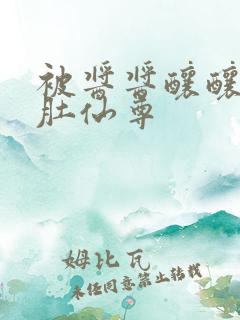 被酱酱酿酿
肚仙尊
姆比瓦
未经同意禁止转载